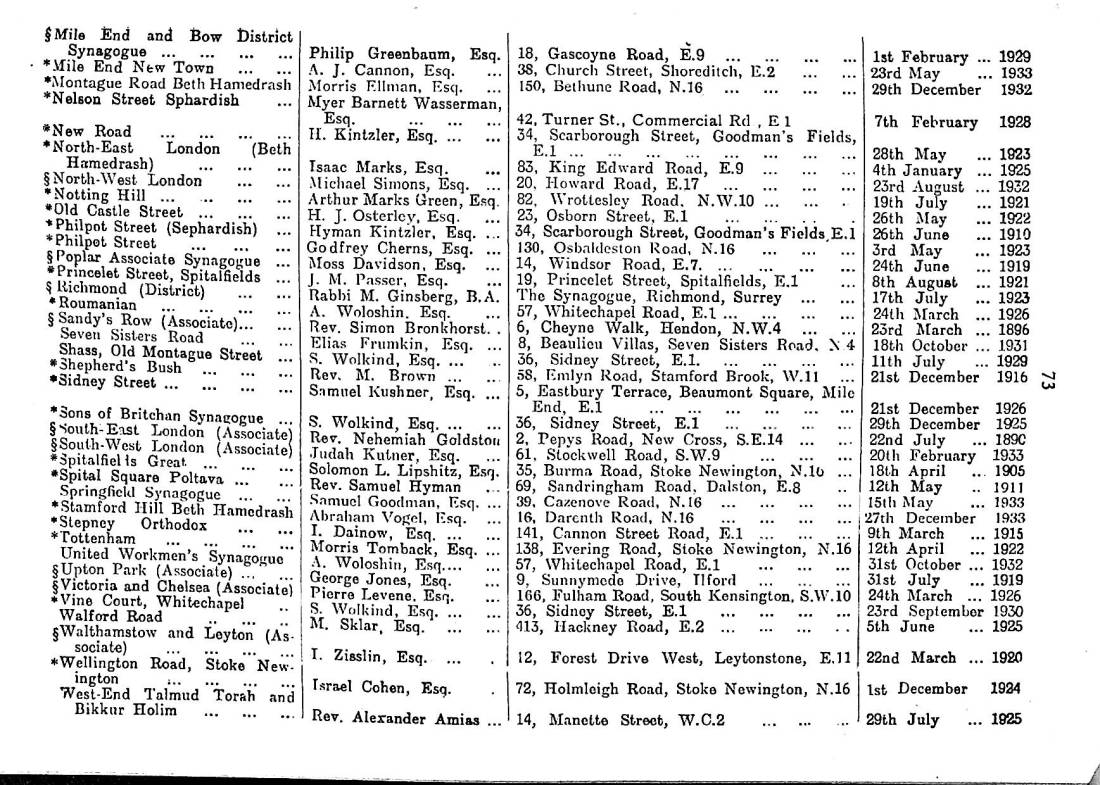 §Mile End and Bow District
Synagogue ... ... ... ... Philip Greenbaum, Esq. 18, Gascoyne Road, E.9 ... ... ... ... 1st February ... 1929
*Mile End New Town ... ... A. J. Cannon, Esq. ... 38, Church Street, Shoreditch, E.2 ... ... 23rd May ... 1933
*Montague Road Beth Hamedrash Morris Ellman, Esq. ... 150, Bethune Road, N.16 ... ... ... ... 29th December 1932
*Nelson Street Sphardish ... Myer Barnett Wasserman,
Esq. ... ... ... 42, Turner St., Commercial Rd , E 1 7th February 1928
*New Road ... ... ... ... H. Kintzler, Esq. ... ... 34, Scarborough Street, Goodman's Fields,
E.1 ... ... ... ... ... ... ... 28th May ... 1923
*North-East London (Beth
Hamedrash) ... ... ... Isaac Marks, Esq. ... 83, King Edward Road, E.9 ... ... ... 4th January ... 1925
§North-West London ... ... Michael Simons, Esq. ... 20, Howard Road, E.17 ... ... ... ... 23rd August ... 1932
*Notting Hill ... ... ... ... Arthur Marks Green, Esq. 82, Wrottesley Road, N.W.10 ... ... . 19th July ... 1921
*Old Castle Street ... ... ... H. J. Osterley, Esq. ... 23, Osborn Street, E.1 ... ... ... ... 26th May ... 1922
*Philpot Street (Sephardish) ... Hyman Kintzler, Esq. ... 34, Scarborough Street, Goodman's Fields, E.1 26th June ... 1910
*Philpot Street ... ... ... Godfrey Cherns, Esq. ... 130, Osbaldeston Road, N.16 ... ... ... 3rd May ... 1923
§Poplar Associate Synagogue ... Moss Davidson, Esq. ... 14, Windsor Road, E.7. ... ... ... ... 24th June ... 1919
*Princelet Street, Spitalfields ... J. M. Passer, Esq. ... 19, Princelet Street, Spitalfields, E.1 ... 8th August ... 1921
§ Richmond (District) ... ... Rabbi M. Ginsberg, B.A. The Synagogue, Richmond, Surrey ... ... 17th July ... 1923
*Roumanian ... ... ... ... A. Woloshin, Esq. ... 57, Whitechapel Road, E.1 ... ... ... ... 24th March ... 1926
§ Sandy's Row (Associate)... ... Rev. Simon Bronkhorst. . 6, Cheyne Walk, Hendon, N.W.4 ... ... 23rd March ... 1896
Seven Sisters Road ... ... Elias Frumkin, Esq. ... 8, Beaulieu Villas, Seven Sisters Road, N 4 18th October ... 1931
Shass, Old Montague Street ... S. Wolkind, Esq. ... ... 36, Sidney Street, E.1. ... ... ... ... 11th July ... 1929
*Shepherd's Bush ... ... ... Rev. M. Brown ... ... 58, Emlyn Road, Stamford Brook, W.11 ... 21st December 1916
*Sidney Street ... ... ... ... Samuel Kushner, Esq. ... 5, Eastbury Terrace, Beaumont Square, Mile
End, E.1 ... ... ... ... ... ... 21st December 1926
*Sons of Britchan Synagogue ... S. Wolkind, Esq. ... ... 36, Sidney Street, E.1 ... ... ... ... 29th December 1925
§South-East London (Associate) Rev. Nehemiah Goldston 2, Pepys Road, New Cross, S.E.14 ... ... 22nd July ... 1890
§South-West London (Associate) Judah Kutner, Esq. ... 61, Stockwell Road, S.W.9 ... ... ... 20th February 1933
*Spitalfields Great ... ... ... Solomon L. Lipshitz, Esq. 35, Burma Road, Stoke Newington, N.16 ... 18th April ... 1905
*Spital Square Poltava ... ... Rev. Samuel Hyman ... 69, Sandringham Road, Dalston, E.8 .. 12th May .. 1911
Springfield Synagogue ... ... Samuel Goodman, Esq. ... 39, Cazenove Road, N.16 ... ... ... ... 15th May ... 1933
*Stamford Hill Beth Hamedrash Abraham Vogel, Esq. ... 16, Darenth Road, N.16 ... ... ... ... 27th December 1933
*Stepney Orthodox ... ... I. Dainow, Esq. ... ... 141, Cannon Street Road, E.1 ... ... ... 9th March ... 1915
*Tottenham ... ... ... ... Morris Tomback, Esq. ... 138, Evering Road, Stoke Newington, N.16 12th April ... 1922
United Workmen's Synagogue A. Woloshin, Esq.... ... 57, Whitechapel Road, E.1 ... ... ... 31st October ... 1932
§Upton Park (Associate) ... ... George Jones, Esq. ... 9, Sunnymede Drive, Ilford ... ... ... 31st July ... 1919
§Victoria and Chelsea (Associate) Pierre Levene, Esq. ... 166, Fulham Road, South Kensington, S.W.10 24th March ... 1926
*Vine Court, Whitechapel .. S. Wolkind, Esq. ... ... 36, Sidney Street, E.1 ... ... ... ... 23rd September 1930
Walford Road .. ... ... M. Sklar, Esq. ... ... 413, Hackney Road, E.2 ... ... ... . . 5th June ... 1925
§Walthamstow and Leyton (As-
sociate) ... ... ... ... I. Zisslin, Esq. ... . 12, Forest Drive West, Leytonstone, E.11 22nd March ... 1920
*Wellington Road, Stoke New-
ington ... ... ... ... Israel Cohen, Esq. . 72, Holmleigh Road, Stoke Newington, N.16 1st December 1924
West-End Talmud Torah and
Bikkur Holim ... ... ... Rev. Alexander Amias ... 14, Manette Street, W.C.2 ... ... ... 29th July ... 1925
73